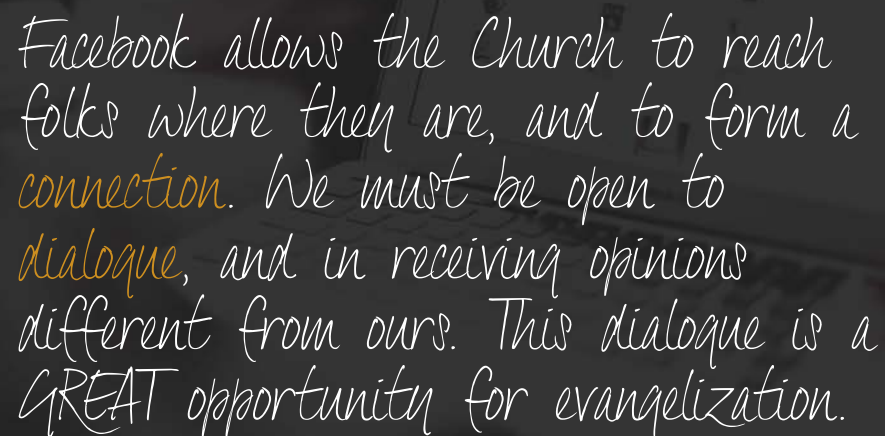 Facebook allows the Church to reach
folks where they are, and to form a
connection. We must be open to
dialogue, and in receiving opinions
different from ours. This dialogue is a
GREAT opportunity for evangelization.